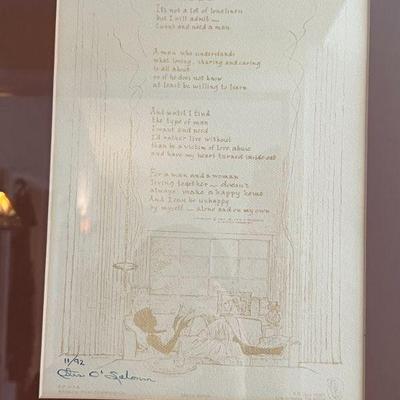 It's not a lot of loneliness
but I will admit —
I want and need a man
A man who understands
what loving, sharing and caring
is all about
or if he does not know
at least be willing to learn
And until I find
the type of man
I want and need
I'd rather live without
than be a victim of love abuse
and have my heart turned inside out
For a man and a woman
living together — doesn't
always make a happy home
And I can be unhappy
by myself — alone and on my own
11/92